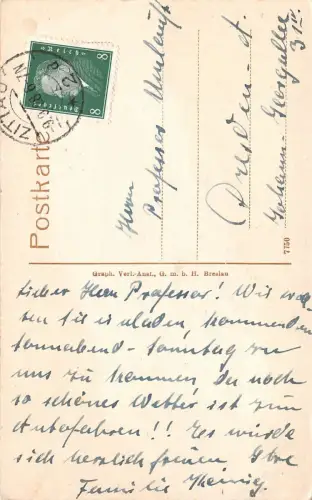 Postkarte
Deutsches Reich
8 8
ZITTAU
Herrn
Professor
Dresden-A.
Johann-Georgallee
31 IV.
7750
Graph. Verl.-Anst., G. m. b. H. Breslau
Lieber Herr Professor!
Sie kommenden
Sonnabend-Sonntag zu
uns zu kommen, da noch
so schönes Wetter ist zum
Autofahren!! Es würde
sich herzlich freuen Ihre
Familie